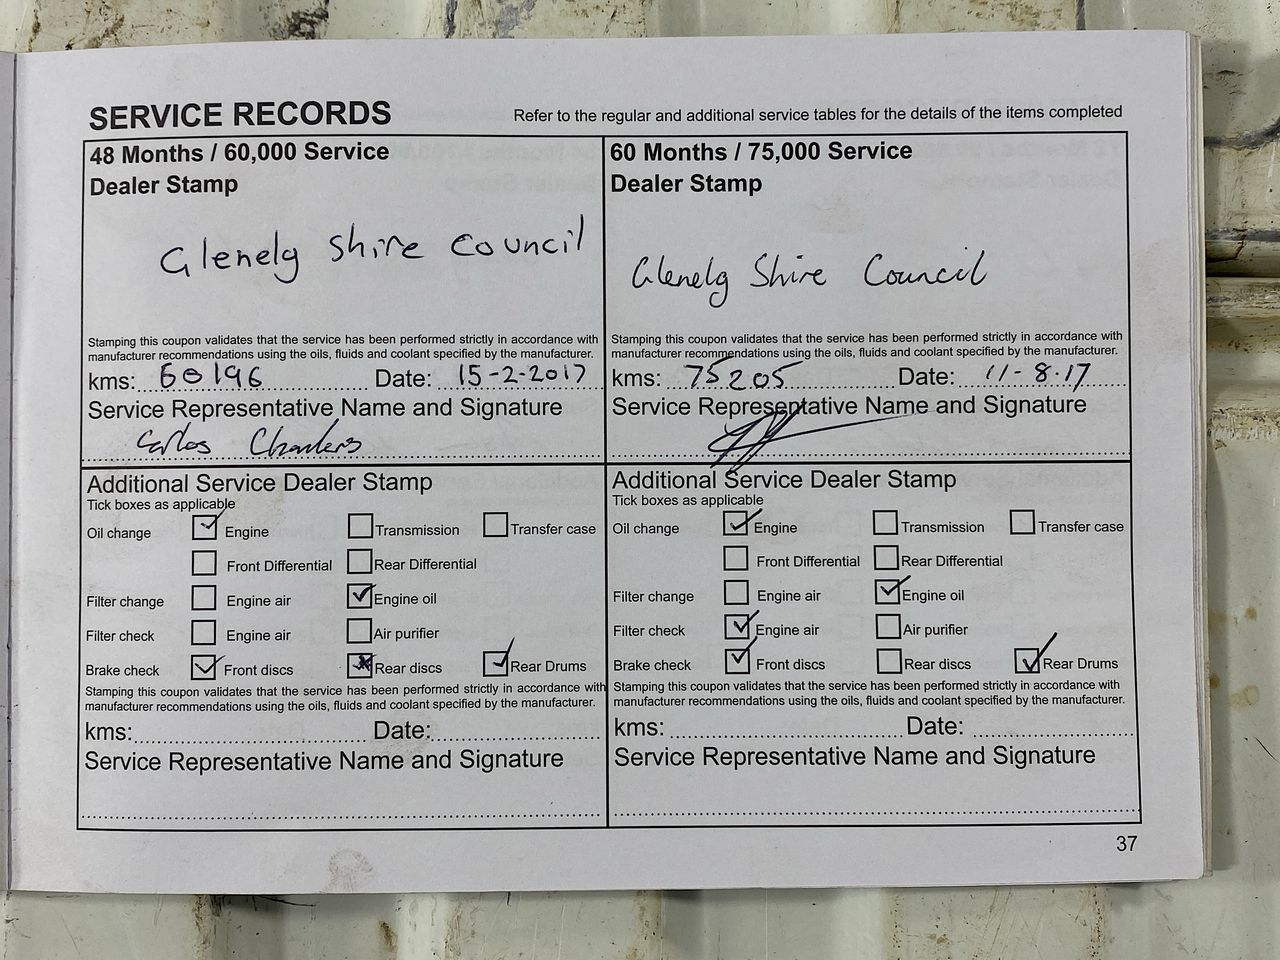 SERVICE RECORDS
Refer to the regular and additional service tables for the details of the items completed
48 Months / 60,000 Service
Dealer Stamp
Glenelg Shire Council
Stamping this coupon validates that the service has been performed strictly in accordance with
manufacturer recommendations using the oils, fluids and coolant specified by the manufacturer.
kms: 60196 Date: 15-2-2017
Service Representative Name and Signature
Carlos
Additional Service Dealer Stamp
Tick boxes as applicable
Oil change Engine Transmission Transfer case
Front Differential Rear Differential
Filter change Engine air Engine oil
Filter check Engine air Air purifier
Brake check Front discs Rear discs Rear Drums
Stamping this coupon validates that the service has been performed strictly in accordance with
manufacturer recommendations using the oils, fluids and coolant specified by the manufacturer.
kms: Date:
Service Representative Name and Signature
60 Months / 75,000 Service
Dealer Stamp
Glenelg Shire Council
Stamping this coupon validates that the service has been performed strictly in accordance with
manufacturer recommendations using the oils, fluids and coolant specified by the manufacturer.
kms: 75205 Date: 11-8.17
Service Representative Name and Signature
Additional Service Dealer Stamp
Tick boxes as applicable
Oil change Engine Transmission Transfer case
Front Differential Rear Differential
Filter change Engine air Engine oil
Filter check Engine air Air purifier
Brake check Front discs Rear discs Rear Drums
Stamping this coupon validates that the service has been performed strictly in accordance with
manufacturer recommendations using the oils, fluids and coolant specified by the manufacturer.
kms: Date:
Service Representative Name and Signature
37